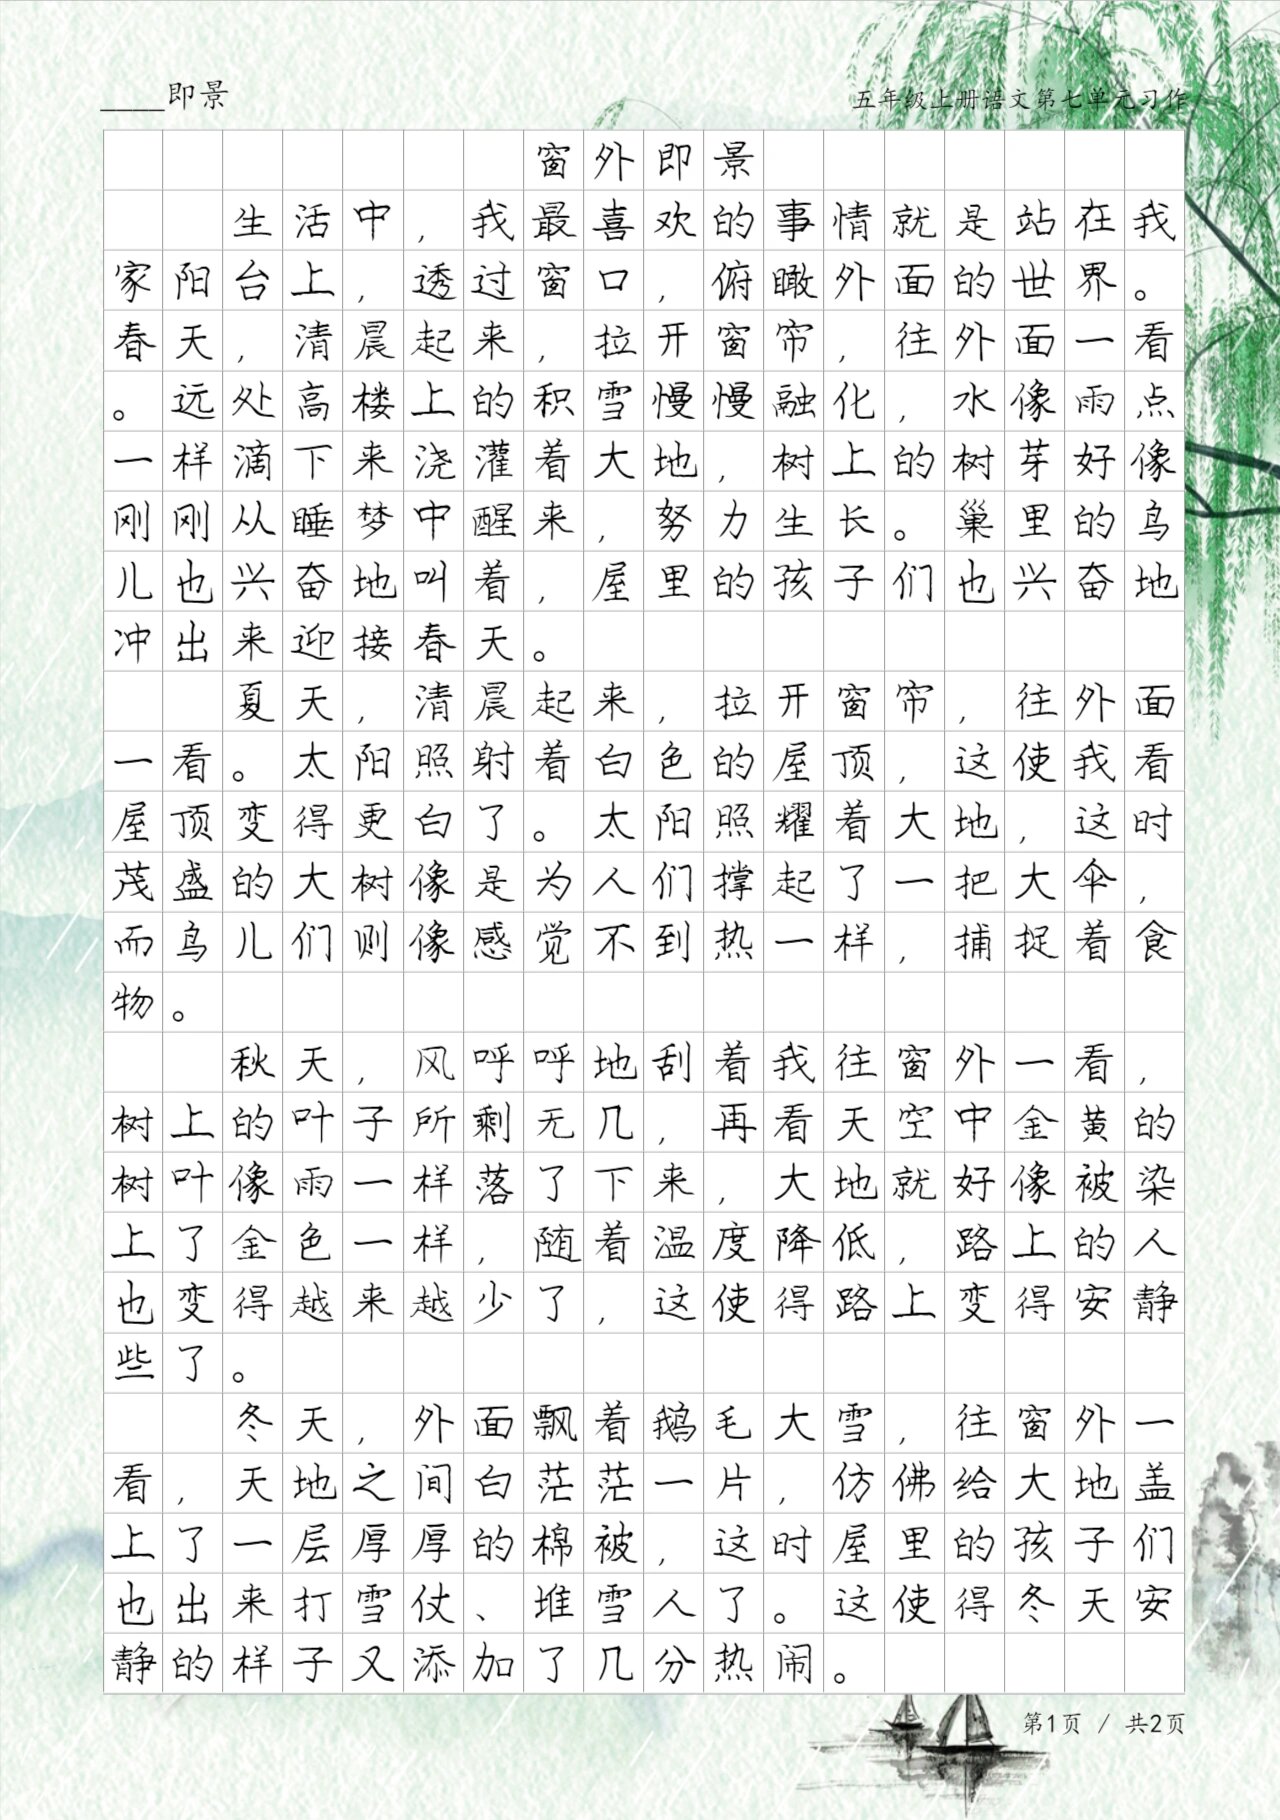 ____即景
五年级上册语文第七单元习作
窗外即景
生活中，我最喜欢的事情就是站在我
家阳台上，透过窗口，俯瞰外面的世界。
春天，清晨起来，拉开窗帘，往外面一看
。远处高楼上的积雪慢慢融化，水像雨点
一样滴下来浇灌着大地，树上的树芽好像
刚刚从睡梦中醒来，努力生长。巢里的鸟
儿也兴奋地叫着，屋里的孩子们也兴奋地
冲出来迎接春天。
夏天，清晨起来，拉开窗帘，往外面
一看。太阳照射着白色的屋顶，这使我看
屋顶变得更白了。太阳照耀着大地，这时
茂盛的大树像是为人们撑起了一把大伞，
而鸟儿们则像感觉不到热一样，捕捉着食
物。
秋天，风呼呼地刮着我往窗外一看，
树上的叶子所剩无几，再看天空中金黄的
树叶像雨一样落了下来，大地就好像被染
上了金色一样，随着温度降低，路上的人
也变得越来越少了，这使得路上变得安静
些了。
冬天，外面飘着鹅毛大雪，往窗外一
看，天地之间白茫茫一片，仿佛给大地盖
上了一层厚厚的棉被，这时屋里的孩子们
也出来打雪仗、堆雪人了。这使得冬天安
静的样子又添加了几分热闹。
第1页 / 共2页